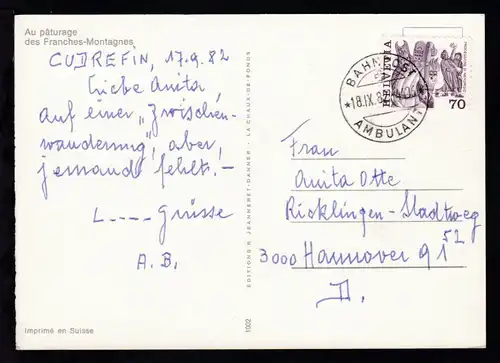 Au pâturage
des Franches-Montagnes
CUDREFIN, 17.9.82
Liebe Anita,
auf einer „Zwischen-
wanderung", aber,
jemand fehlt! -
L---- Grüsse
A. B.
Imprimé en Suisse
EDITIONS R. JEANNERET-DANNER - LA CHAUX-DE-FONDS
1002
BAHNPOST
18.IX.8
AMBULANT
HELVETIA
70
Frau
Anita Otte
Ricklingen-Stadtweg
52
3000 Hannover 91
D.